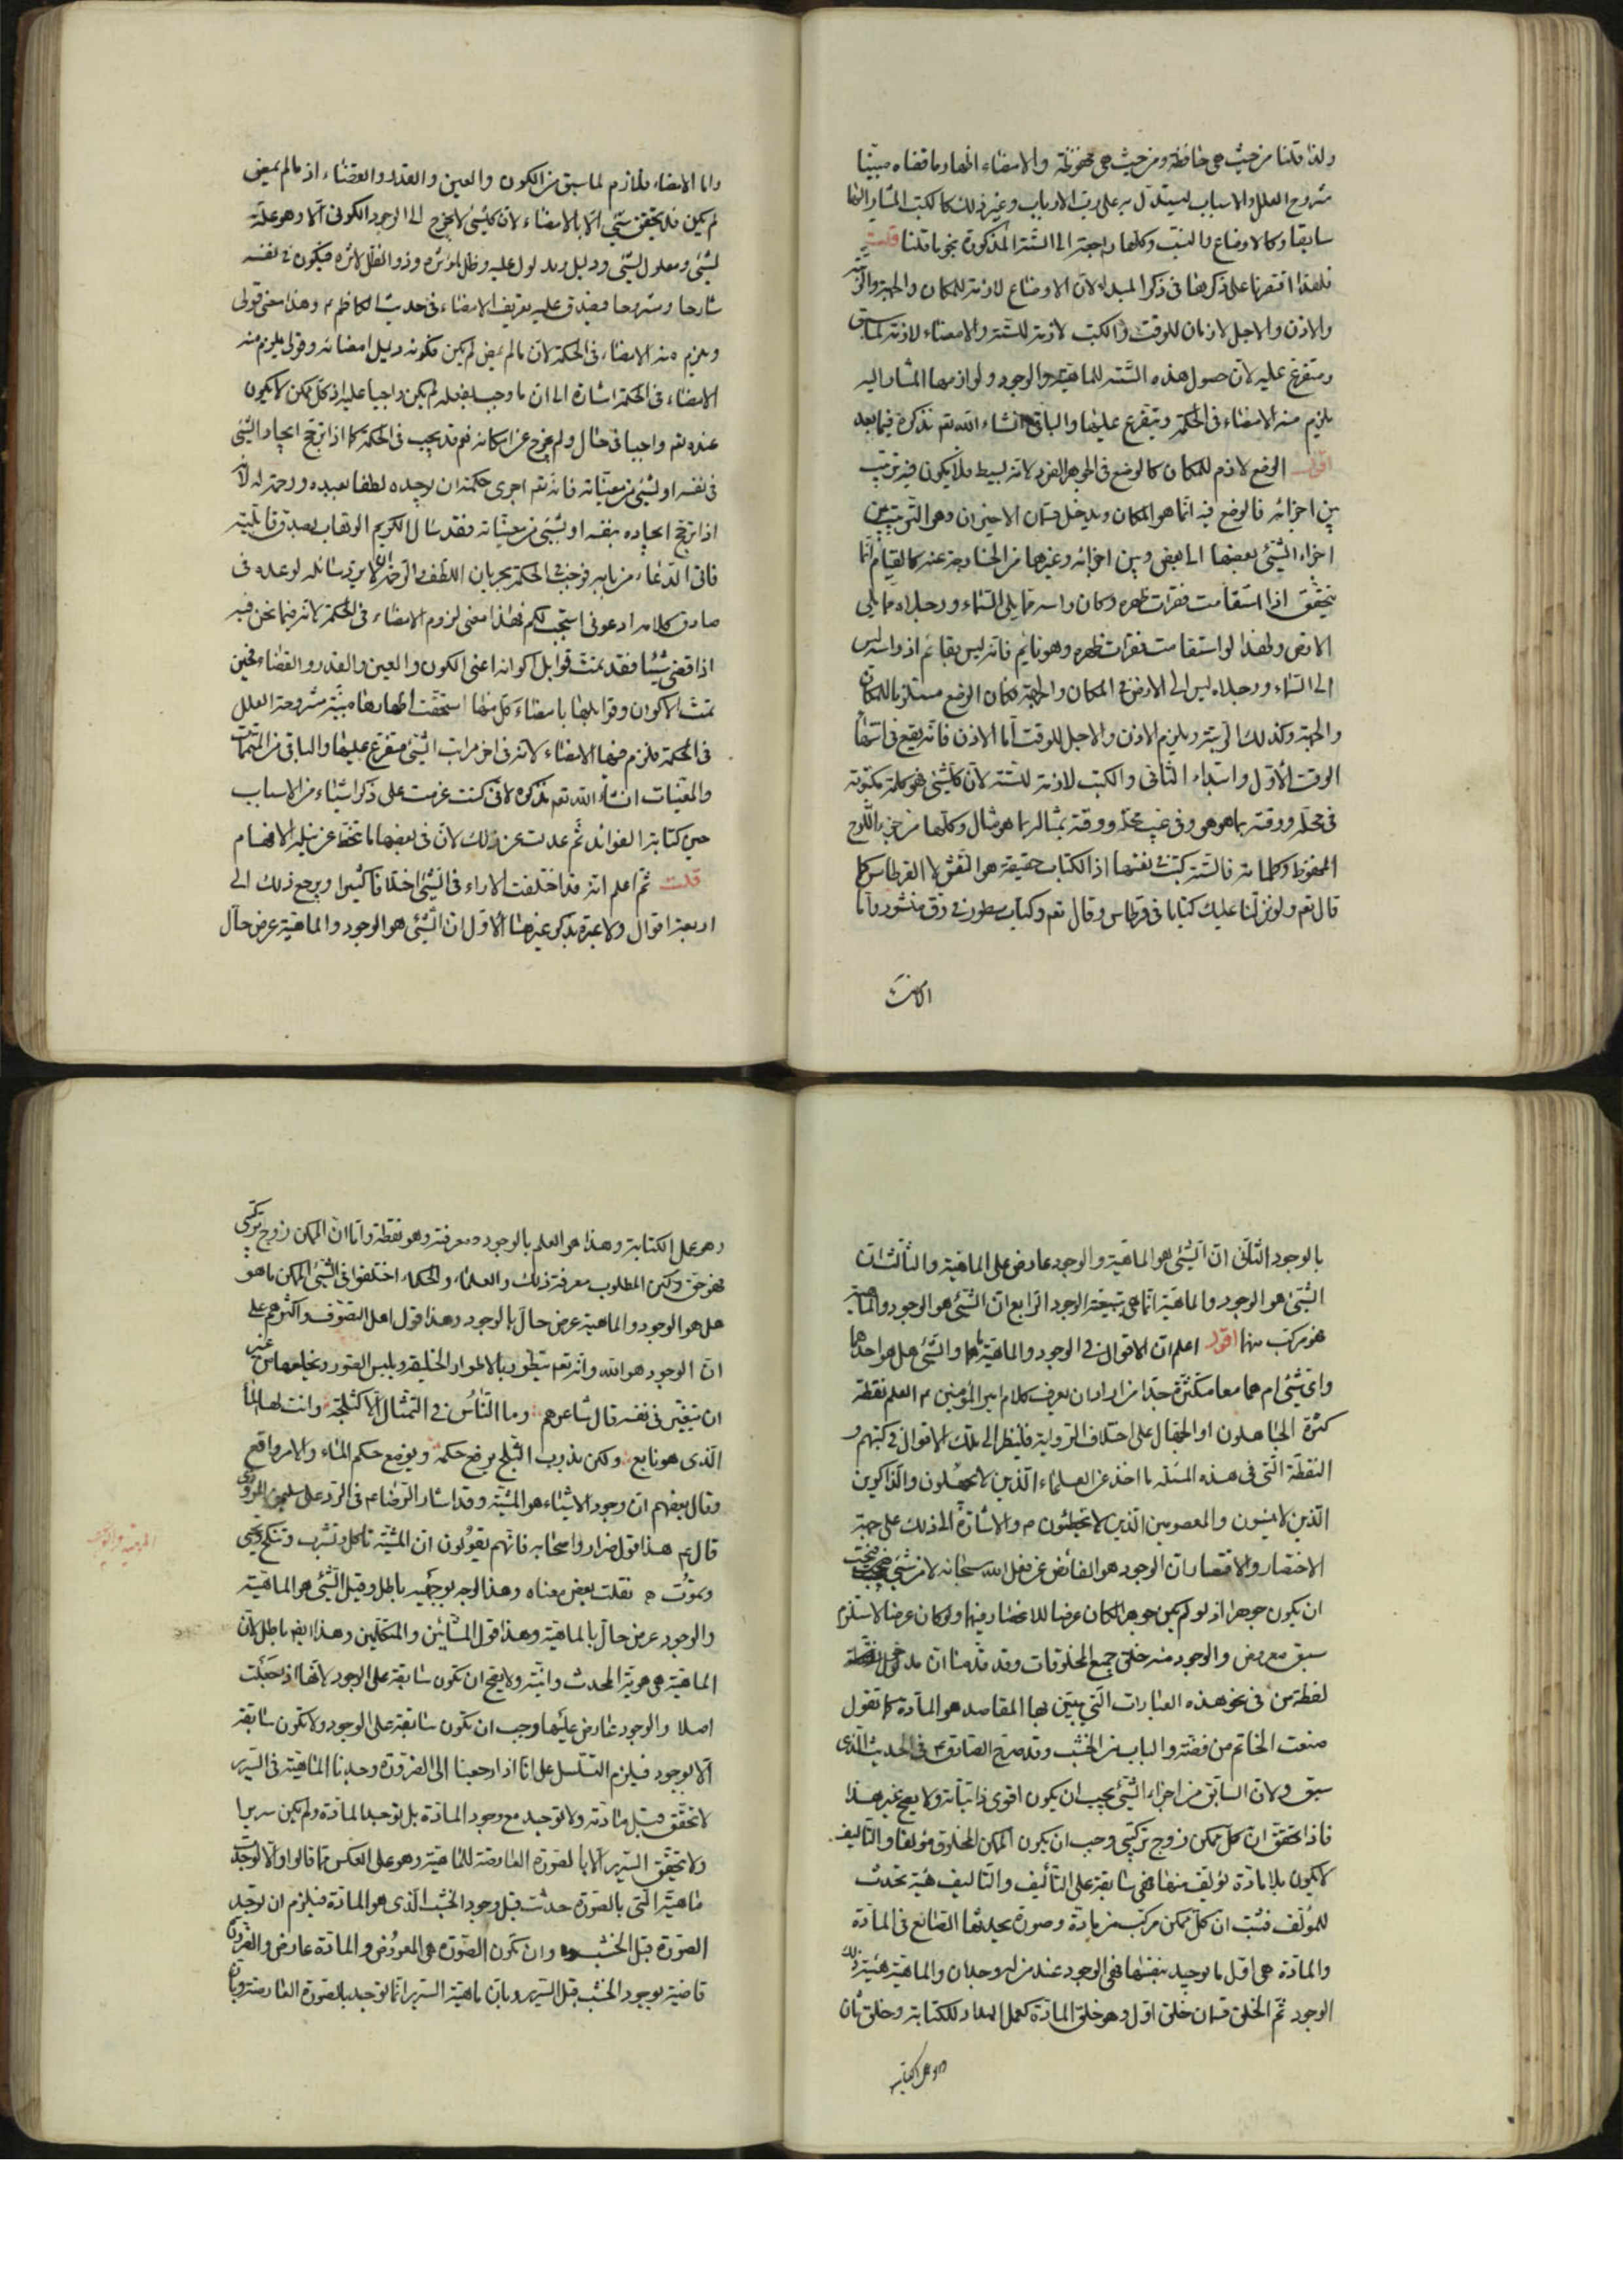 ولذا قلنا من حيث هى حافظة ومن حيث هى محفوظة والامضاء اظهار ما قضاه مبيّنا
مشروح العلل والاسباب ليستدلّ به على ربّ الارباب وغير ذلك كالكتب المشار اليها
سابقا وكالاوضاع والنسب وكلها راجعة الى الستّة المذكورة بنحو ما قلنا قلت
فلهذا اقتصرنا على ذكرها فى ذكر المبدء لان الاوضاع لازمة للمكان والجهة والرتبة
والاذن والاجل لازمان للوقت والكتب لازمة للستّة والامضاء لازمة لما سبق
ومتفرع عليه لان حصول هذه الستّة للماهيّة والوجود ولوازمها المشار اليه
يلزم منه الامضاء فى الحكمة ويتفرع عليها والباقى انشاء الله تع نذكره فيما بعد
اقول الوضع لازم للمكان كالوضع فى الجوهر الفرد لانه بسيط فلا يكون فيه ترتيب
بين اجزائه فالوضع فيه انّما هو المكان ويدخل قسمان الاخيران وهو الترتيب بين
اجزاء الشّئ بعضها الى بعض وبين اجزائه وغيرها من الخارجة عنه كالقيام انّما
يتحقّق اذا استقامت فقرات ظهره وكان راسه ممّا يلى السّماء ورجلاه ممّا يلى
الارض ولهذا لو استقامت فقرات ظهره وهو نايم فانه ليس بقائم اذ راسه ليس
الى السّماء ورجلاه ليس الى الارض فى المكان والجهة فكان الوضع مستلزما للمكان
والجهة وكذلك الرتبة ويلزم الاذن والاجل للوقت امّا الاذن فانّه يقع فى انتهاء
الوقت الاوّل وابتداء الثانى والكتب لازمة للستّة لان كلّ شئ فهو كلمة مكتوبة
فى محلّه ووقته بما هو هو وفى غيب محلّه ووقته بمثاله بما هو مثال وكلها من جزء اللّوح
المحفوظ وكلماته فالستّة كتبت بنفسها اذ الكتاب حقيقة هو النّقش لا القرطاس كما
قال تع ولو نزّلنا عليك كتابا فى قرطاس وقال تع وكتاب مسطور فى رقّ منشور وامّا
وامّا الامضاء فلازم لما سبق من الكون والعين والقدر والقضاء اذ ما لم يمض
لم يكن فلا يتحقّق شئ الّا بالامضاء لان كلّ شئ لا يخرج الى الوجود الكونى الّا وهو علّة
لشئ ومعلول لشئ ودليل ومدلول عليه وظل لمؤثره وذو الظلّ لاثره فيكون فى نفسه
شارحا ومشروحا فيصدق عليه تعريف الامضاء فى حديث الكاظم ع وهذا معنى قولى
ويلزم منه الامضاء فى الحكمة لان ما لم يمض لم يكن فكونه دليل امضائه وقولى يلزم منه
الامضاء فى الحكمة اشارة الى ان ما وجب بفعله لم يكن واجبا عليه اذ كلّ ممكن لا يكون
عنده تع واجبا فى حال ولم يخرج عن امكانه نعم قد يجب فى الحكمة كما اذا ترجّح ايجاد الشّئ
فى نفسه او لشئ من معيّناته فانّه تع اجرى حكمته ان يوجده لطفا بعبيده ورحمة له لانّه
اذا ترجّح ايجاده بنفسه او بشئ من معيّناته فقد سال الكريم الوهّاب بصدق قابليّته
فاتى الدّعاء من بابه فوجب فى الحكمة بجريان اللطف والرحمة ان لا يردّ سائله لوعده فى
صادق كلامه ادعونى استجب لكم فهذا معنى لزوم الامضاء فى الحكمة لانّه فيما نحن فيه
اذا قضى شيئا فقد تمّت قوابل اكوانه اعنى الكون والعين والقدر والقضاء فحين
تمّت الاكوان وقوابلها بامضاء كلّ منها استحقّت اظهارها مبيّنة مشروحة العلل
فى الحكمة فلزم منها الامضاء لانه فى اخر مراتب الشّئ متفرع عليها والباقى من المتممات
والمعيّنات انشاء الله تع نذكره لانى كنت عزمت على ذكر اشياء من الاسباب
حين كتابة الفوائد ثمّ عدلت عن ذلك لان فى بعضها ما تنحطّ عن نيله الافهام
قلت ثمّ اعلم انّه قد اختلفت الاراء فى الشّئ اختلافا كثيرا ويرجع ذلك الى
اربعة اقوال ولا عبرة بذكر غيرها الاوّل انّ الشّئ هو الوجود والماهيّة عرض حالّ
بالوجود الثّانى انّ الشّئ هو الماهيّة والوجود عارض على الماهيّة والثّالث انّ
الشّئ هو الوجود والماهيّة انّما هى تبعيّة الوجود الرابع انّ الشّئ هو الوجود والماهيّة
فهو مركب منهما اقول اعلم ان الاقوال فى الوجود والماهيّة والشئ هل هو احدهما
واى شئ ام هما معا متكثّرة جدا من اراد ان يعرف كلام امير المؤمنين ع العلم نقطة
كثّرها الجاهلون او الجهّال على اختلاف الرواية فلينظر الى تلك الاقوال فى كتبهم و
النقطة الّتى فى هذه المسئلة ما اخذ عن العلماء الّذين لا يجهلون والذاكرين
الّذين لا ينسون والمعصومين الّذين لا يخطئون ع والاشارة الى ذلك على جهة
الاختصار والاقتصار ان الوجود هو الفائض عن فعل الله سبحانه لا من شئ فيجب
ان يكون جوهرا اذ لو لم يكن جوهرا لكان عرضا للانحصار فيهما ولو كان عرضا لاستلزم
سبق معروض والوجود منه خلق جميع المخلوقات وقد قدّمنا ان مدخول
لفظة من فى نحو هذه العبارات الّتى يبيّن بها المقاصد هو المادّة كما تقول
صنعت الخاتم من فضّة والباب من الخشب وقد صرّح الصّادق ع فى الحديث الّذى
سبق ولان السّابق من اجزاء الشّئ يجب ان يكون اقوى ذاتيّاته ولا يصحّ غير هذا
فاذا تحقّق ان كلّ ممكن زوج تركيبى وجب ان يكون الممكن المخلوق مؤلفا والتّاليف
لا يكون بلا مادّة يؤلّف منها فهى سابقة على التّأليف والتّاليف هيئة تحدث
للمؤلّف فثبت ان كلّ ممكن مركب من مادّة وصورة يحدثها الصّانع فى المادّة
والمادّة هى اوّل ما يوجد بنفسها فهى الوجود عند من له وجدان والماهيّة هيئة ذلك
الوجود ثمّ الخلق قسمان خلق اوّل وهو خلق المادّة كعمل المداد للكتابة وخلق ثان
وهو عمل الكتابة
وهو عمل الكتابة وهذا هو العلم بالوجود ومعرفته وهو نقطة وامّا انّ الممكن زوج تركيبى
فهو حقّ ولكن المطلوب معرفة ذلك والعلماء والحكماء اختلفوا فى الشّئ الممكن ما هو
هل هو الوجود والماهية عرض حالّ بالوجود وهذا قول اهل التصوّف واكثرهم على
انّ الوجود هو الله وانّه تع يتطوّر بالاطوار الخليقة ويلبس الصّور ويخلعها من غير
ان يتغيّر فى نفسه قال شاعرهم وما النّاس فى التمثال الّا كثلجة وانت لها الماء
الّذى هو نابع ولكن بذوب الثّلج يرفع حكمه ويوضع حكم الماء والامر واقع
وقال بعضهم انّ وجود الاشياء هو المشيّة وقد اشار الرّضا ع فى الردّ على سليمن المروزى
قال ع هذا قول ضرار واصحابه فانّهم يقولون انّ المشيّة تاكل وتشرب وتنكح وتحيى
وتموت ه نقلت بعض معناه وهذا الوجه بوجهيه باطل وقيل الشّئ هو الماهيّة
والوجود عرض حالّ بالماهيّة وهذا قول المشّائين والمتكلّمين وهذا ايضا باطل لانّ
الماهيّة هى هويّة المحدث وانيّته ولا يصحّ ان تكون سابقة على الوجود لانّها اذ جعلت
اصلا والوجود عارض عليها وجب ان تكون سابقة على الوجود ولا تكون سابقة
الّا بوجود فيلزم التّسلسل على انّا اذا رجعنا الى الضّرورة وجدنا الماهيّة فى السّرير
لا تتحقّق قبل مادّته ولا توجد مع وجود المادّة بل توجد المادّة ولم يكن سريرا
ولا يتحقّق السّرير الّا بالصّورة العارضة للماهيّة وهو على العكس ممّا قالوا والّا لوجدت
ماهيّة الّتى بالصّورة حدثت قبل وجود الخشب الّذى هو المادّة فيلزم ان توجد
الصّورة قبل الخشب وان تكون الصّورة هى المعروض والمادّة عارض والضّرورة
قاضية بوجود الخشب قبل السّرير وبان ماهيّة السّرير انّما توجد بالصّورة العارضة وبان